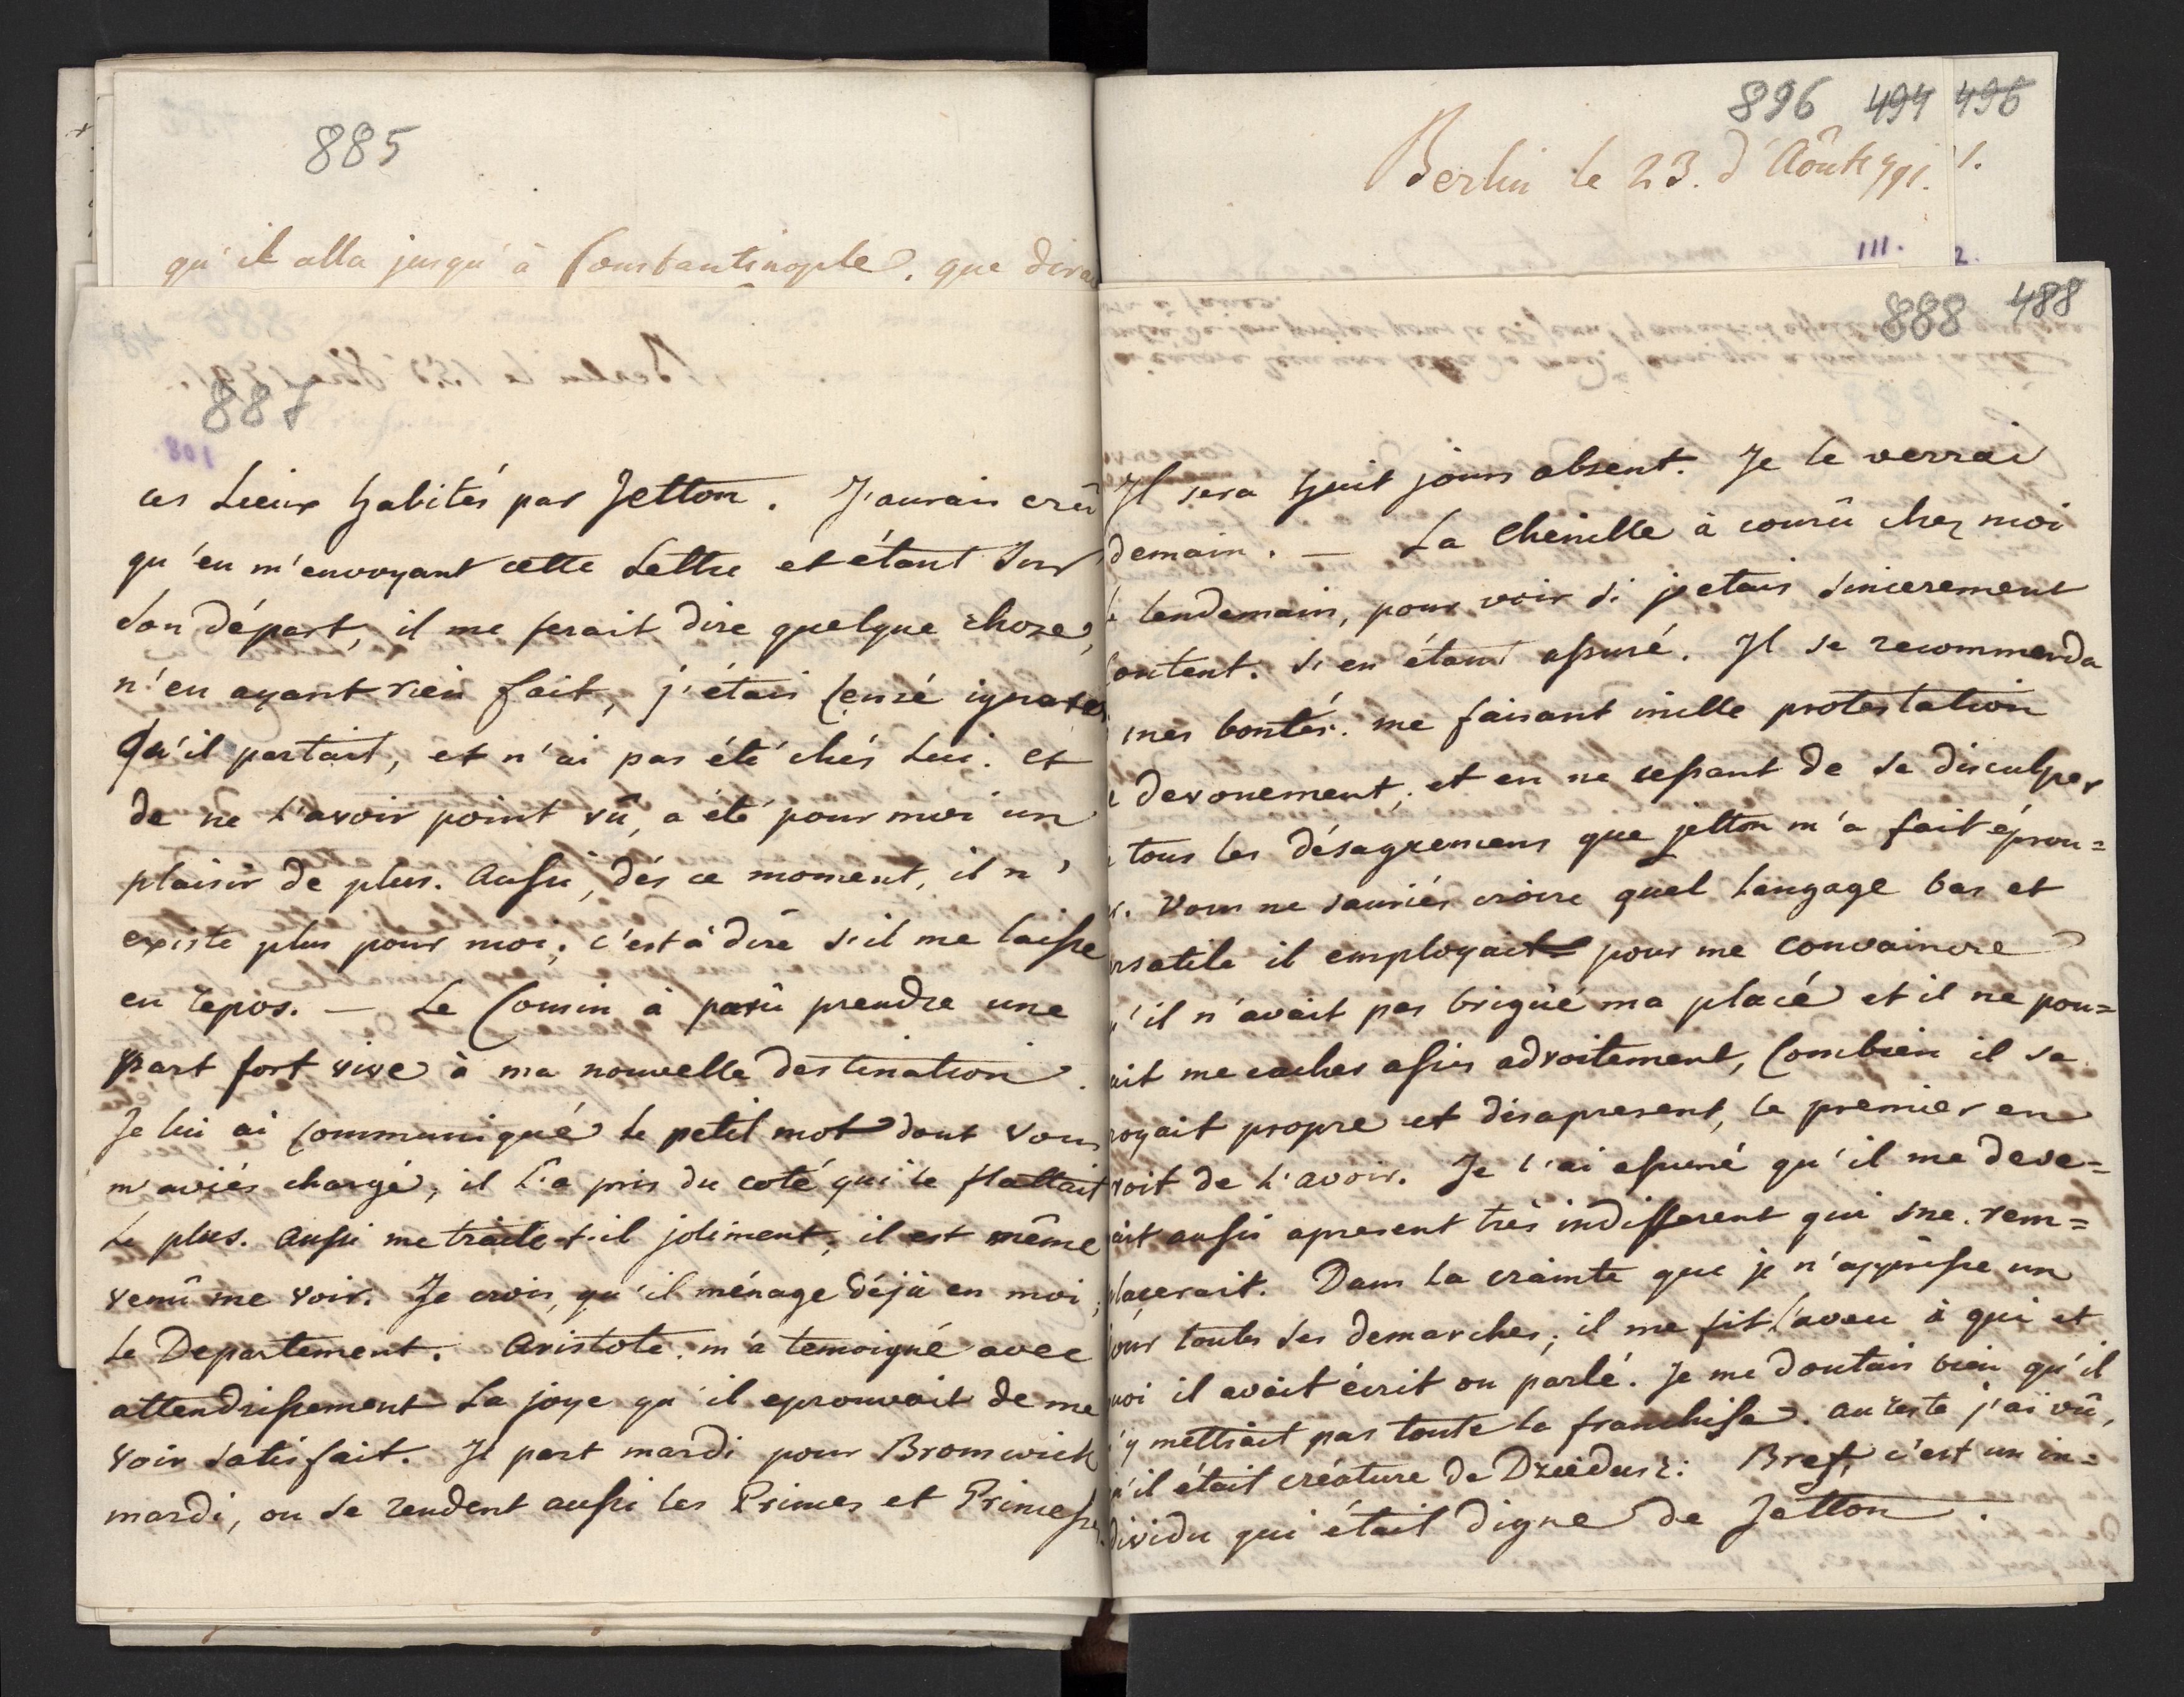 885
qu'il alla jusqu'à Constantinople. que dira
887
ces Lieux habités par Jetton. J'aurais crû
qu'en m'envoyant cette Lettre et étant Sur
Son départ, il me ferait dire quelque choze,
n'en ayant rien fait, j'étais censé ignorer
Qu'il partait, et n'ai pas été chés Lui. et
de ne L'avoir point vû, a été pour moi un
plaisir de plus. Aussi, dés ce moment, il n'
existe plus pour moi; c'est à dire s'il me laisse
en repos. — Le Cousin à parû prendre une
part fort vive à ma nouvelle destination.
Je lui ai communiqué le petit mot dont vous
m'aviés chargé, il L'a pris du coté qui le flattait
Le plus. Aussi me traite-t-il joliment, il est même
venû me voir. Je crois, qu'il ménage déjà en moi,
Le Departement. Aristote m'a temoigné avec
attendrissement La joye qu'il eprouvait de me
voir satisfait. Il part mardi pour Bromwick
mardi, ou se rendent aussi les Princes et Princesses.
896 494 496
Berlin le 23. d'Aôut 791. 1.
111. 2.
888 488
Il sera huit jours absent. Je le verrai
demain. — La Chenille à courû chez moi
le lendemain, pour voir si j'etais sincerement
Content. S'en étant assuré. Il se recommenda
mes bontés. me faisant mille protestation
devouement, et en ne cessant de se disculper
tous les désagremens que jetton m'a fait éprou=
r. Vous ne sauriés croire quel langage bas et
rsatile il employait pour me convaincre
qu'il n'avait pas brigué ma place et il ne pou=
ait me cacher assés adroitement, Combien il se
royait propre et disapresent, le premier en
roit de L'avoir. Je l'ai assuré qu'il me deve=
ait aussi apresent très indifferent qui me rem=
placerait. Dans La crainte que je n'apprisse un
jour toutes ses demarches, il me fit l'aveu à qui et
uoi il avait écrit ou parlé. Je me doutais bien qu'il
n'y mettrait pas toute la franchise. au reste j'ai vû,
qu'il était créature de Dzieduszi: Bref, c'est un in=
dividu qui était digne de Jetton.